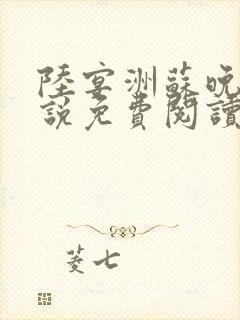 陸宴洲蘇晚
說免費閱讀
菱七